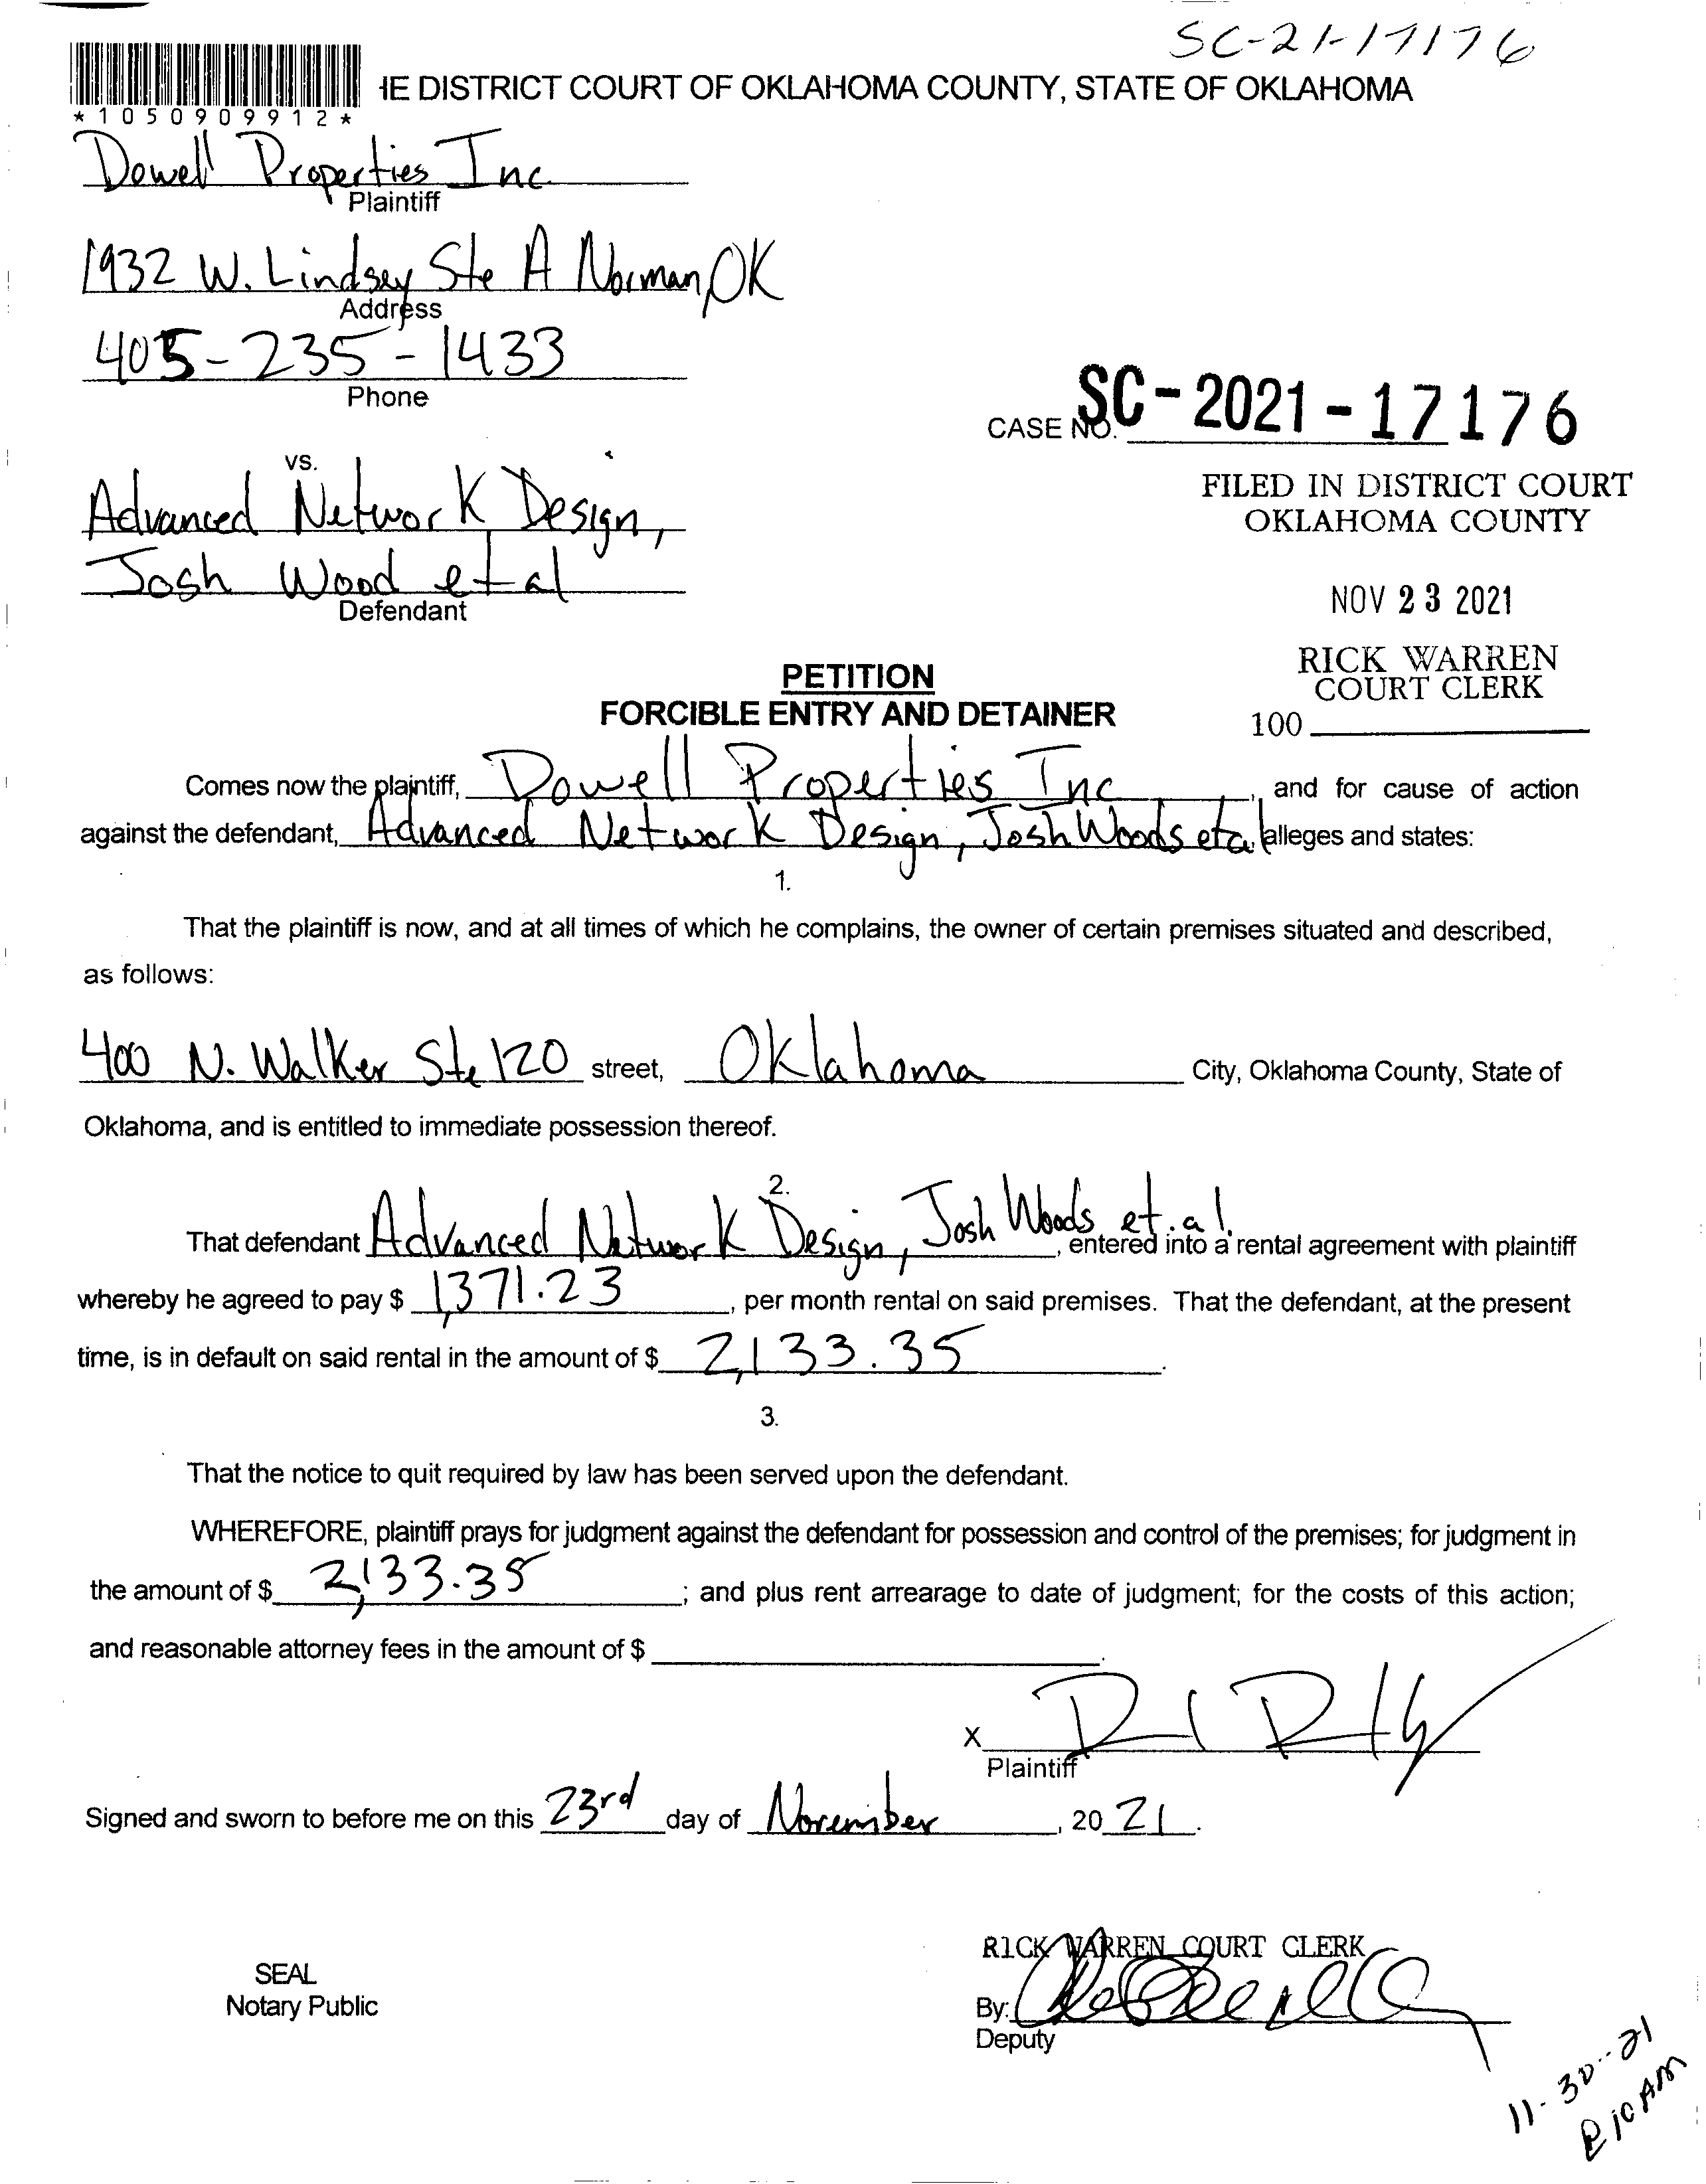 SC-21-17176
HE DISTRICT COURT OF OKLAHOMA COUNTY, STATE OF OKLAHOMA
*1050909912*
Dowell Properties Inc.
Plaintiff
1932 W. Lindsey Ste A Norman, OK
Address
405-235-1433
Phone
CASE NO. SC-2021-17176
vs.
FILED IN DISTRICT COURT
OKLAHOMA COUNTY
Advanced Network Design,
Josh Wood et al
Defendant
NOV 23 2021
RICK WARREN
COURT CLERK
100
PETITION
FORCIBLE ENTRY AND DETAINER
Comes now the plaintiff, Dowell Properties Inc, and for cause of action
against the defendant, Advanced Network Design, Josh Woods et al, alleges and states:
1.
That the plaintiff is now, and at all times of which he complains, the owner of certain premises situated and described,
as follows:
400 N. Walker Ste 120 street, Oklahoma City, Oklahoma County, State of
Oklahoma, and is entitled to immediate possession thereof.
2.
That defendant Advanced Network Design, Josh Woods et. al., entered into a rental agreement with plaintiff
whereby he agreed to pay $ 1,371.23, per month rental on said premises. That the defendant, at the present
time, is in default on said rental in the amount of $ 2,133.35.
3.
That the notice to quit required by law has been served upon the defendant.
WHEREFORE, plaintiff prays for judgment against the defendant for possession and control of the premises; for judgment in
the amount of $ 2,133.35; and plus rent arrearage to date of judgment; for the costs of this action;
and reasonable attorney fees in the amount of $ .
X
Plaintiff
Signed and sworn to before me on this 23rd day of November, 20 21.
RICK WARREN COURT CLERK
SEAL
Notary Public
By:
Deputy
11-30-21
@ 10 AM